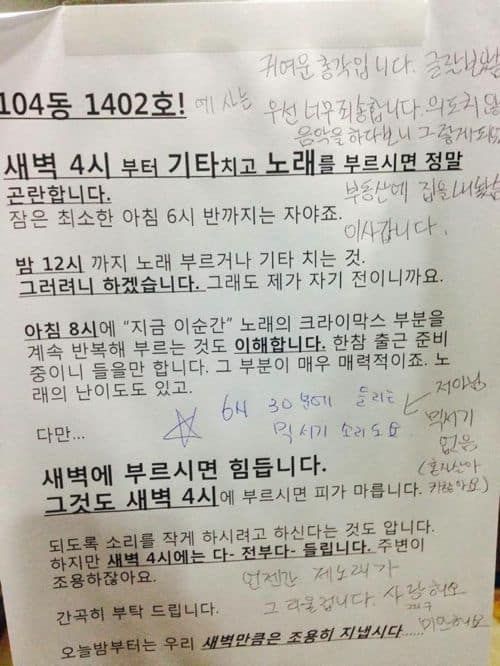 귀여운 총각입니다. 글 잘 보았
104동 1402호! 에 사는
우선 너무 죄송합니다. 의도치 않
음악을 하다보니 그렇게 되
새벽 4시 부터 기타치고 노래를 부르시면 정말
곤란합니다.
부동산에 집을 내놨
잠은 최소한 아침 6시 반까지는 자야죠.
이사갑니다.
밤 12시 까지 노래 부르거나 기타 치는 것.
그러려니 하겠습니다. 그래도 제가 자기 전이니까요.
아침 8시에 "지금 이순간" 노래의 크라이막스 부분을
계속 반복해 부르는 것도 이해합니다. 한참 출근 준비
중이니 들을만 합니다. 그 부분이 매우 매력적이죠. 노
래의 난이도도 있고.
6시 30분에 들리는
믹서기 소리도요
저 아님
믹서기
없음
(혼자살아
다만...
새벽에 부르시면 힘듭니다.
그것도 새벽 4시에 부르시면 피가 마릅니다.
되도록 소리를 작게 하시려고 하신다는 것도 압니다.
하지만 새벽 4시에는 다- 전부다- 들립니다. 주변이
조용하잖아요.
언젠간 제 노래가
간곡히 부탁 드립니다.
그리울겁니다. 사랑해요
오늘밤부터는 우리 새벽만큼은 조용히 지냅시다......
미안해요